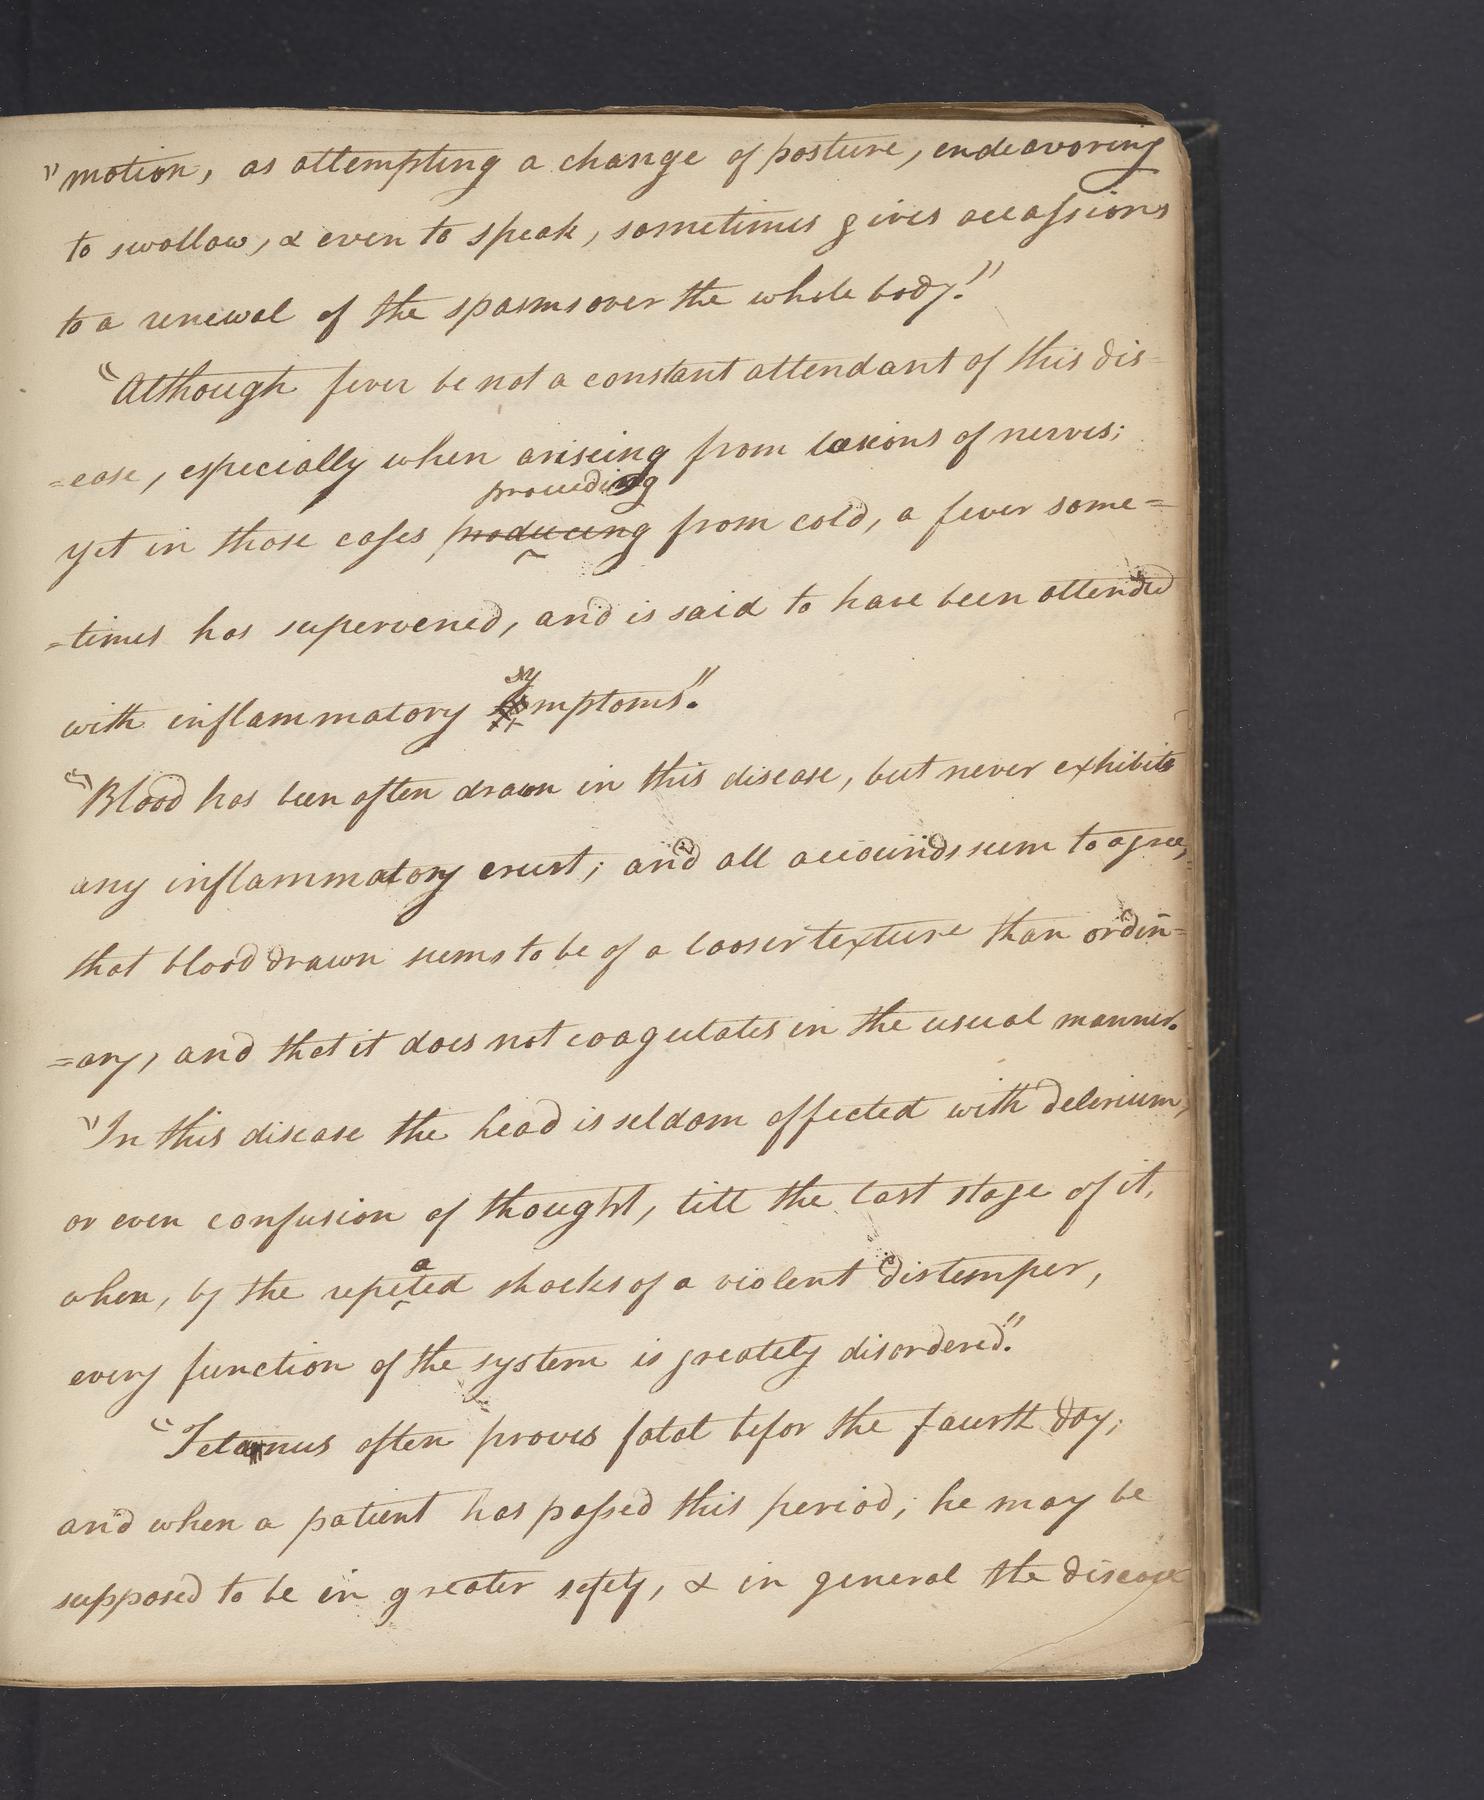 "motion, as attempting a change of posture, endeavoring
to swollow, & even to speak, sometimes gives accassions
to a renewal of the spasms over the whole body."
"Although fever be not a constant attendant of this dis-
=ease, especially when ariseing from lasions of nerves;
proceeding
yet in those cases producing from cold, a fever some=
=times has supervened, and is said to have been attended
sy
with inflammatory mptoms".
"Blood has been often drawn in this disease, but never exhibits
any inflammatory crust; and all accounds seem to agree,
that blood drawn seems to be of a looser texture than ordin=
=ary, and that it does not coagulates in the usual manner.
"In this disease the head is seldom affected with delirium,
or even confusion of thought, till the last stage of it,
a
when, by the repeted shocks of a violent distemper,
every function of the system is greately disordered."
"Tetanus often proves fatal befor the fourth day;
and when a patient has passed this period, he may be
supposed to be in greater sefety, & in general the disease